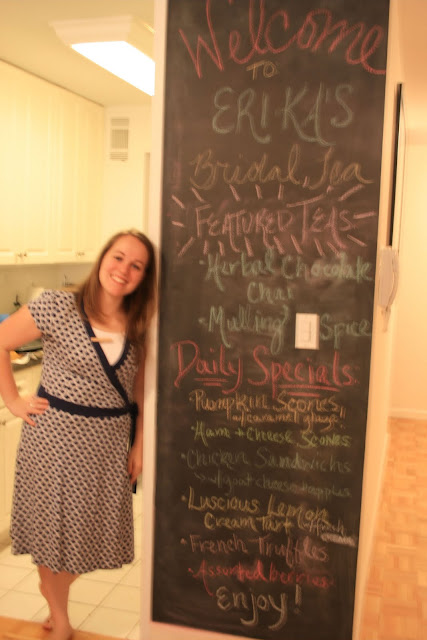 Welcome
TO
ERIKA'S
Bridal Tea
FEATURED TEAS
• Herbal Chocolate
Chai
• Mulling Spice
Daily Specials
Pumpkin Scones
w/ caramel glaze!!
• Ham + Cheese Scones
• Chicken Sandwichs
w/ goat cheese + apples
• Luscious Lemon
Cream Tart
• French Truffles
• Assorted berries
Enjoy!